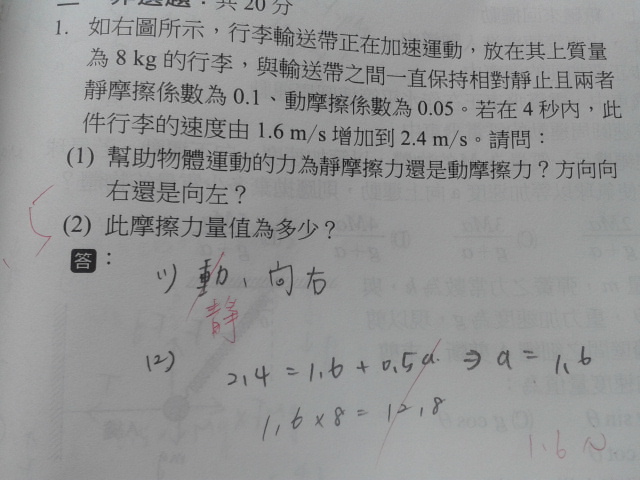 二、非選題：共 20 分
1. 如右圖所示，行李輸送帶正在加速運動，放在其上質量
為 8 kg 的行李，與輸送帶之間一直保持相對靜止且兩者
靜摩擦係數為 0.1、動摩擦係數為 0.05。若在 4 秒內，此
件行李的速度由 1.6 m/s 增加到 2.4 m/s。請問：
(1) 幫助物體運動的力為靜摩擦力還是動摩擦力？方向向
右還是向左？
(2) 此摩擦力量值為多少？
答：
(1) 動、向右
靜
(2) 2.4 = 1.6 + 0.5a ⇒ a = 1.6
1.6 × 8 = 12.8
1.6 N